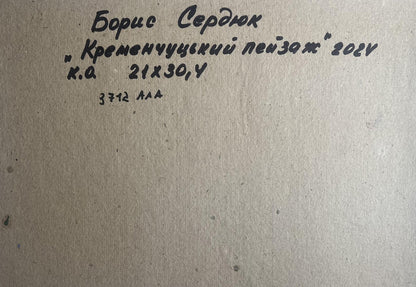 Борис Сердюк
„Кременчуцький пейзаж" 2024
к.о. 21х30,4
3712 ААА